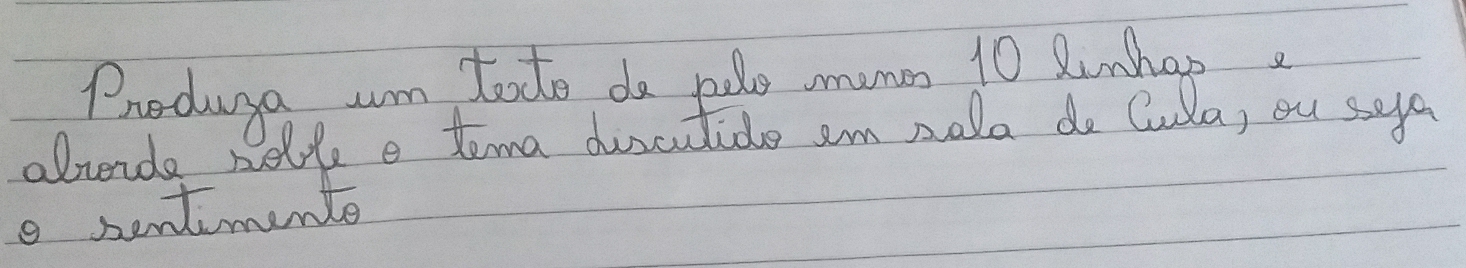 Produza um texto de pelo menos 10 linhas e
aborde sobre o tema discutido em sala de Aula, ou seja
o sentimento